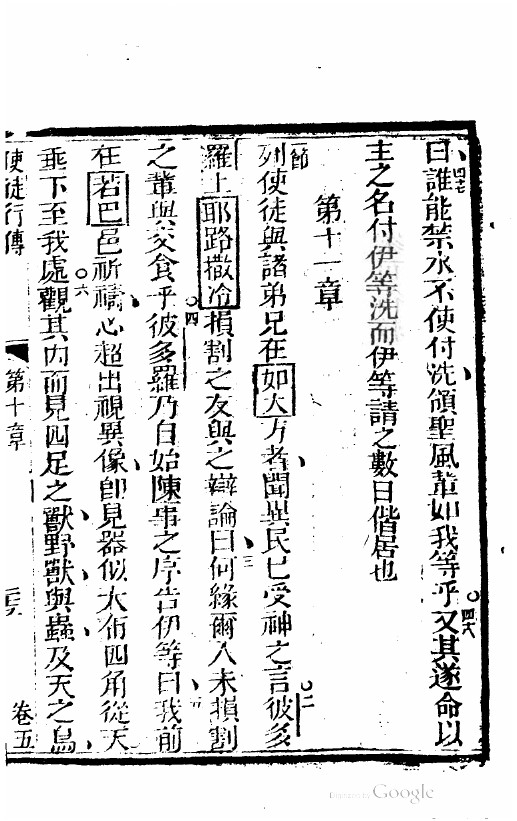 四七
曰誰能禁水不使付洗領聖風輩如我等乎又其遂命以
四八
主之名付伊等洗而伊等請之數日偕居也
第十一章
一節
列使徒與諸弟兄在如大方者聞異民已受神之言彼多
二
羅上耶路撒冷損割之友與之辯論曰何緣爾入未損割
三
之輩與交食乎彼多羅乃自始陳事之序告伊等曰我前
四
五
在若巴邑祈禱心超出視異像即見器似大布四角從天
垂下至我處觀其內而見四足之獸野獸與蟲及天之鳥
六
使徒行傳
第十章
卷五
Digitized by Google